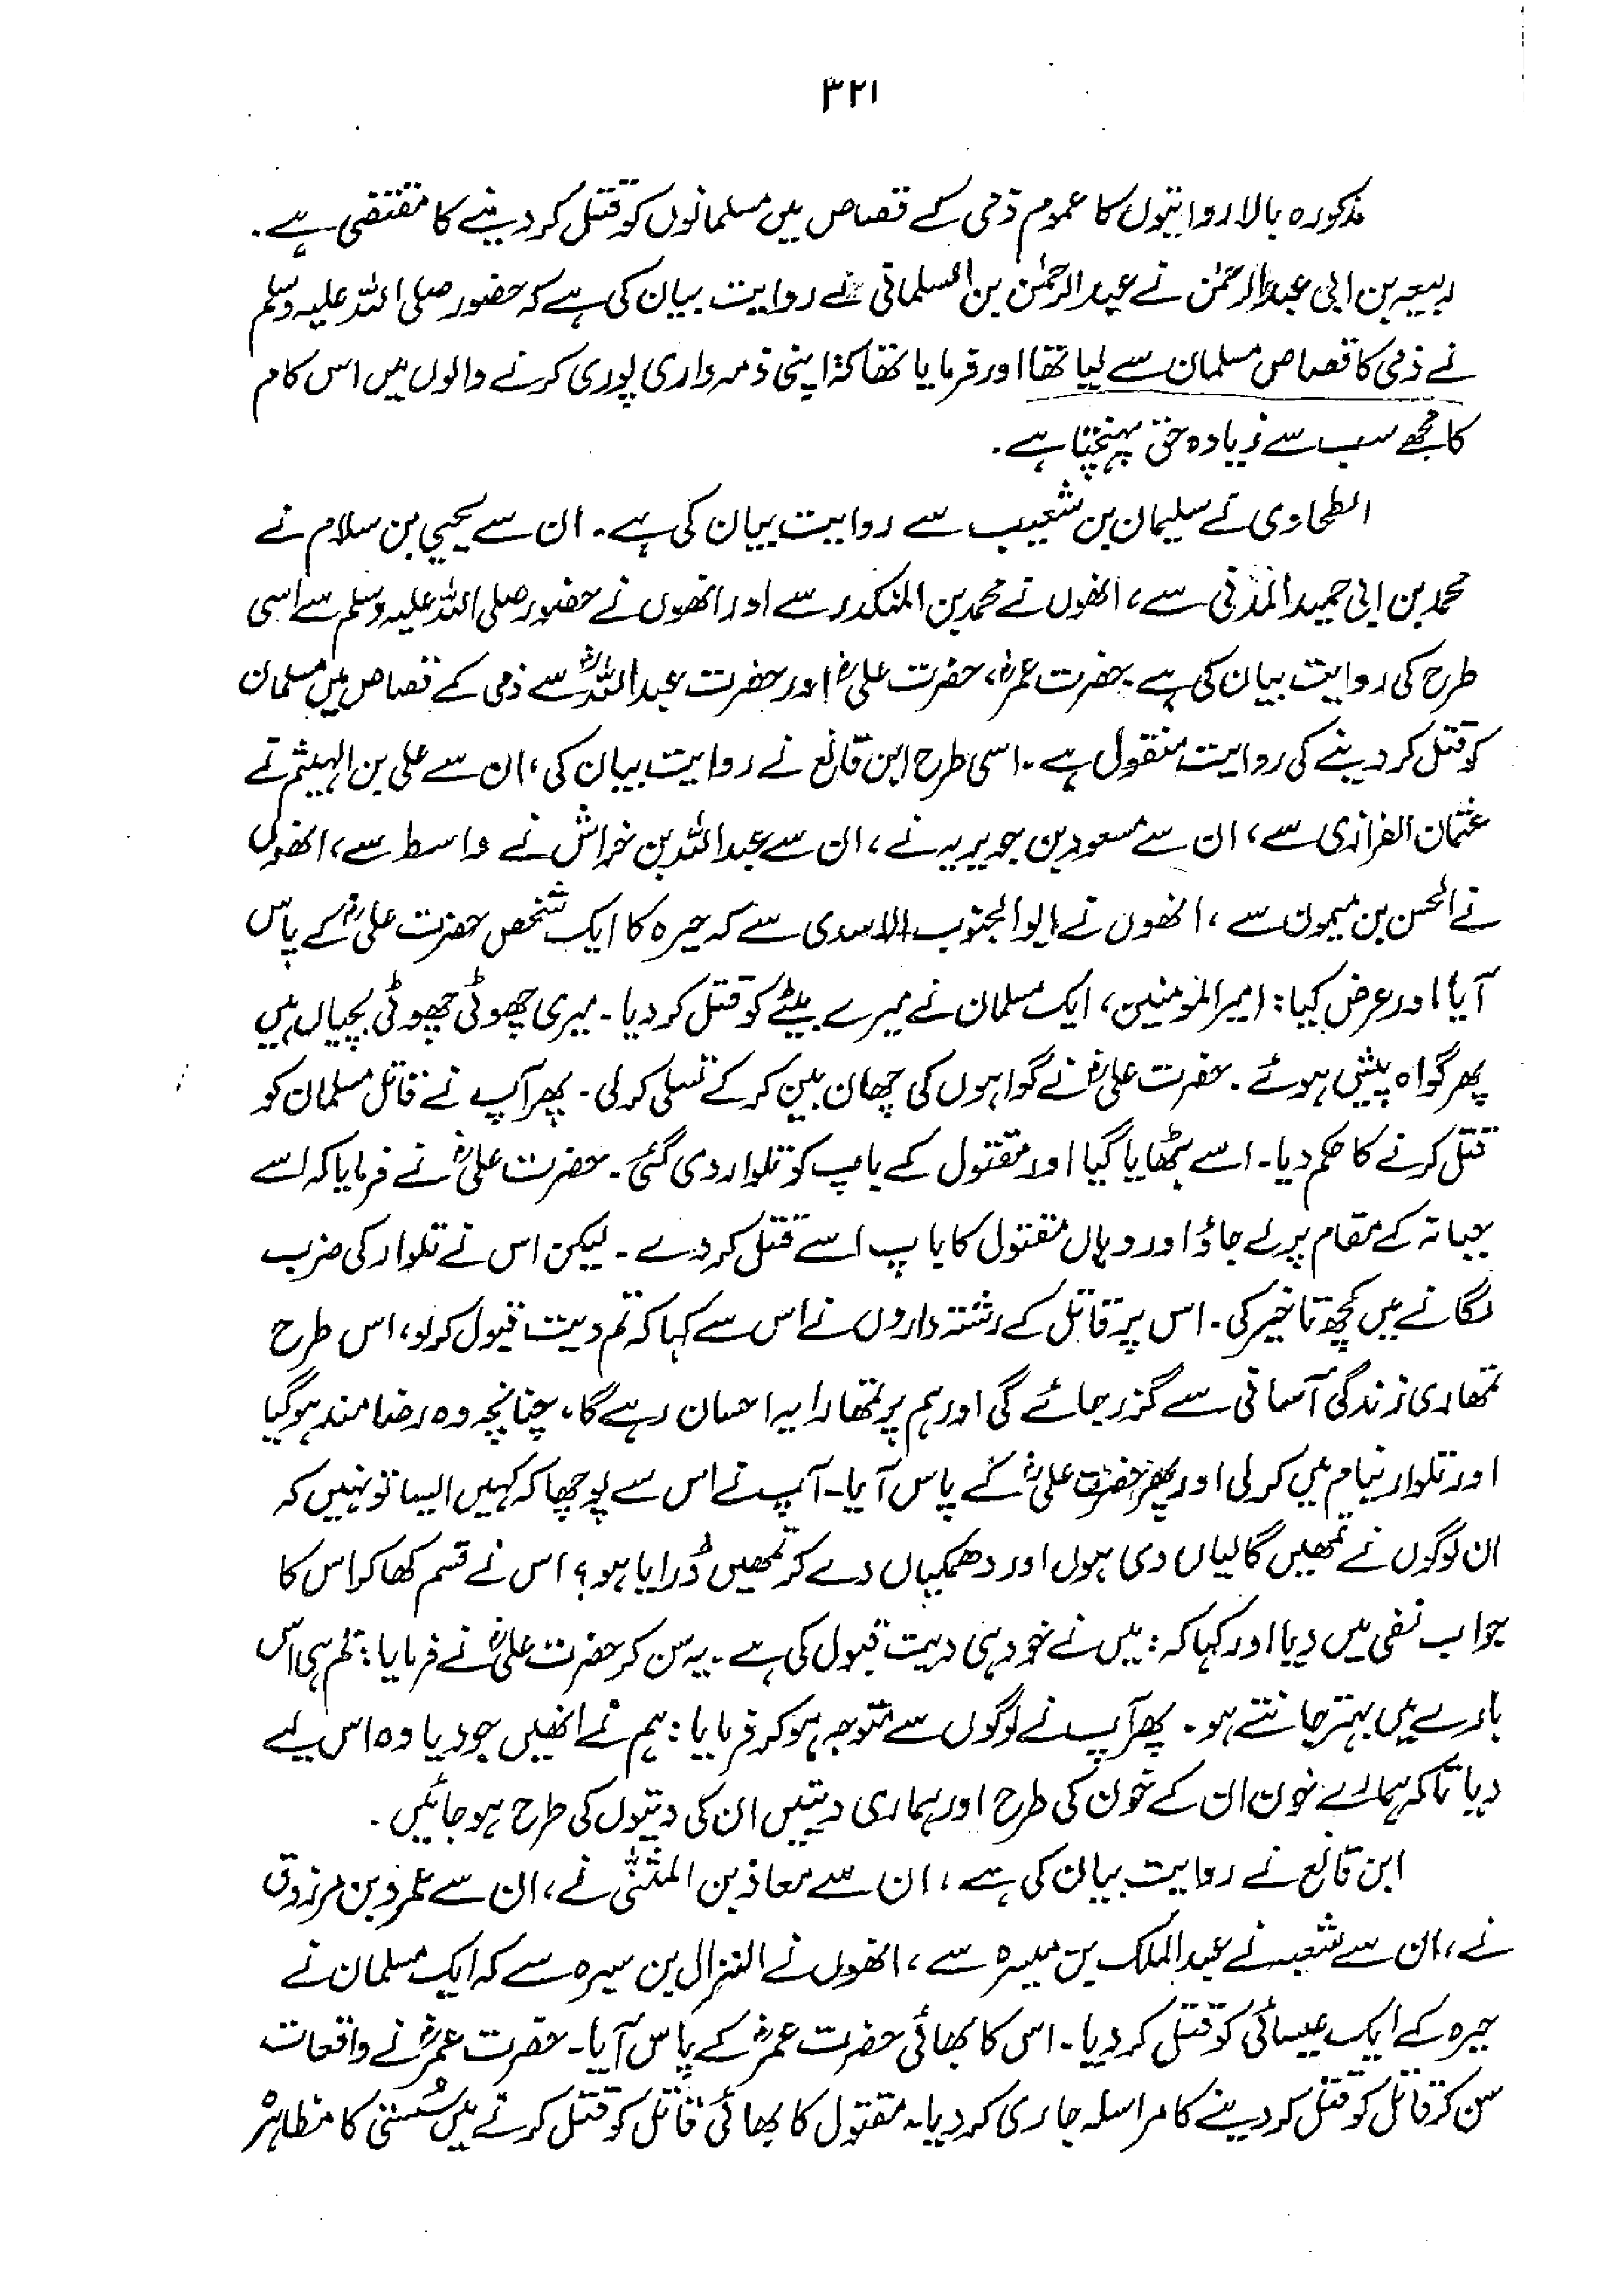 ۳۲۱
مذکورہ بالا روایتوں کا عموم ذمی کے قصاص میں مسلمانوں کو قتل کر دینے کا مقتضی ہے۔
ربیعہ بن ابی عبدالرحمٰن نے عبدالرحمٰن بن السلمانی سے روایت بیان کی ہے کہ حضور صلی اللہ علیہ وسلم
نے ذمی کا قصاص مسلمان سے لیا تھا اور فرمایا تھا کہ اپنی ذمہ داری پوری کرنے والوں میں اس کام
کا مجھے سب سے زیادہ حق پہنچتا ہے۔
الطحاوی نے سلیمان بن شعیب سے روایت بیان کی ہے۔ ان سے یحییٰ بن سلام نے
محمد بن ابی حمید المدنی سے، انھوں نے محمد بن المنکدر سے اور انھوں نے حضور صلی اللہ علیہ وسلم سے اسی
طرح کی روایت بیان کی ہے۔ حضرت عمرؓ، حضرت علیؓ اور حضرت عبداللہؓ سے ذمی کے قصاص میں مسلمان
کو قتل کر دینے کی روایت منقول ہے۔ اسی طرح ابن قانع نے روایت بیان کی، ان سے علی بن الہیثم نے
عثمان الفزازی سے، ان سے مسعود بن جویریہ نے، ان سے عبداللہ بن خراش نے واسط سے، انھوں
نے الحسن بن میمون سے، انھوں نے ابوالجنوب الاسدی سے کہ حیرہ کا ایک شخص حضرت علیؓ کے پاس
آیا اور عرض کیا: امیرالمومنین، ایک مسلمان نے میرے بیٹے کو قتل کر دیا۔ میری چھوٹی چھوٹی بچیاں ہیں
پھر گواہ پیش ہوئے۔ حضرت علیؓ نے گواہوں کی چھان بین کر کے تسلی کر لی۔ پھر آپ نے قاتل مسلمان کو
قتل کرنے کا حکم دیا۔ اسے بٹھایا گیا اور مقتول کے باپ کو تلوار دی گئی۔ حضرت علیؓ نے فرمایا کہ اسے
جبانہ کے مقام پر لے جاؤ اور وہاں مقتول کا باپ اسے قتل کر دے۔ لیکن اس نے تلوار کی ضرب
لگانے میں کچھ تاخیر کی۔ اس پر قاتل کے رشتہ داروں نے اس سے کہا کہ تم دیت قبول کر لو، اس طرح
تمھاری زندگی آسانی سے گزر جائے گی اور ہم پر تمھارا یہ احسان رہے گا، چنانچہ وہ رضامند ہو گیا
اور تلوار نیام میں کر لی اور پھر حضرت علیؓ کے پاس آیا۔ آپ نے اس سے پوچھا کہ کہیں ایسا تو نہیں کہ
ان لوگوں نے تمھیں گالیاں دی ہوں اور دھمکیاں دے کر تمھیں ڈرایا ہو؟ اس نے قسم کھا کر اس کا
جواب نفی میں دیا اور کہا کہ: میں نے خود ہی دیت قبول کی ہے۔ یہ سن کر حضرت علیؓ نے فرمایا: تم ہی اس
بارے میں بہتر جانتے ہو۔ پھر آپ نے لوگوں سے متوجہ ہو کر فرمایا: ہم نے انھیں جو دیا وہ اس لیے
دیا تاکہ ہمارے خون ان کے خون کی طرح اور ہماری دیتیں ان کی دیتوں کی طرح ہو جائیں۔
ابن قانع نے روایت بیان کی ہے، ان سے معاذ بن المثنیٰ نے، ان سے عمرو بن مرزوق
نے، ان سے شعبہ نے عبدالملک بن میسرہ سے، انھوں نے النزال بن سبرہ سے کہ ایک مسلمان نے
حیرہ کے ایک عیسائی کو قتل کر دیا۔ اس کا بھائی حضرت عمرؓ کے پاس آیا۔ حضرت عمرؓ نے واقعات
سن کر قاتل کو قتل کر دینے کا مراسلہ جاری کر دیا۔ مقتول کا بھائی قاتل کو قتل کرنے میں سُستی کا مظاہرہ